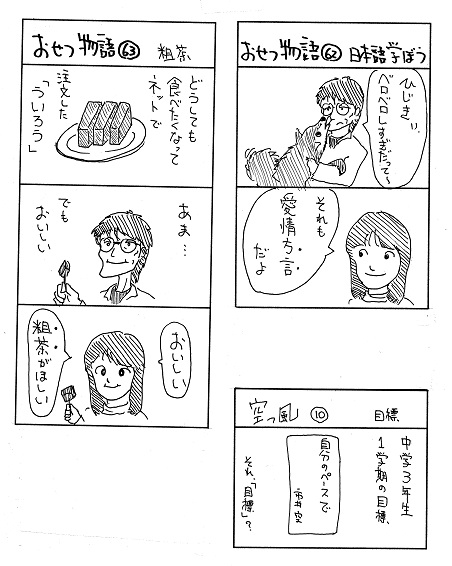 おせつ物語 62 日本語学ぼう
ひじきぃ、
ベロベロしすぎだって〜
それも
愛情方言
だよ
おせつ物語 63 粗茶
どうしても
食べたくなって
ネットで
注文した
「ういろう」
あま…
でも
おいしい
おいしい
粗茶がほしい
空っ風 10 目標
中学3年生
1学期の目標
自分のペースで
それ、「目標」?